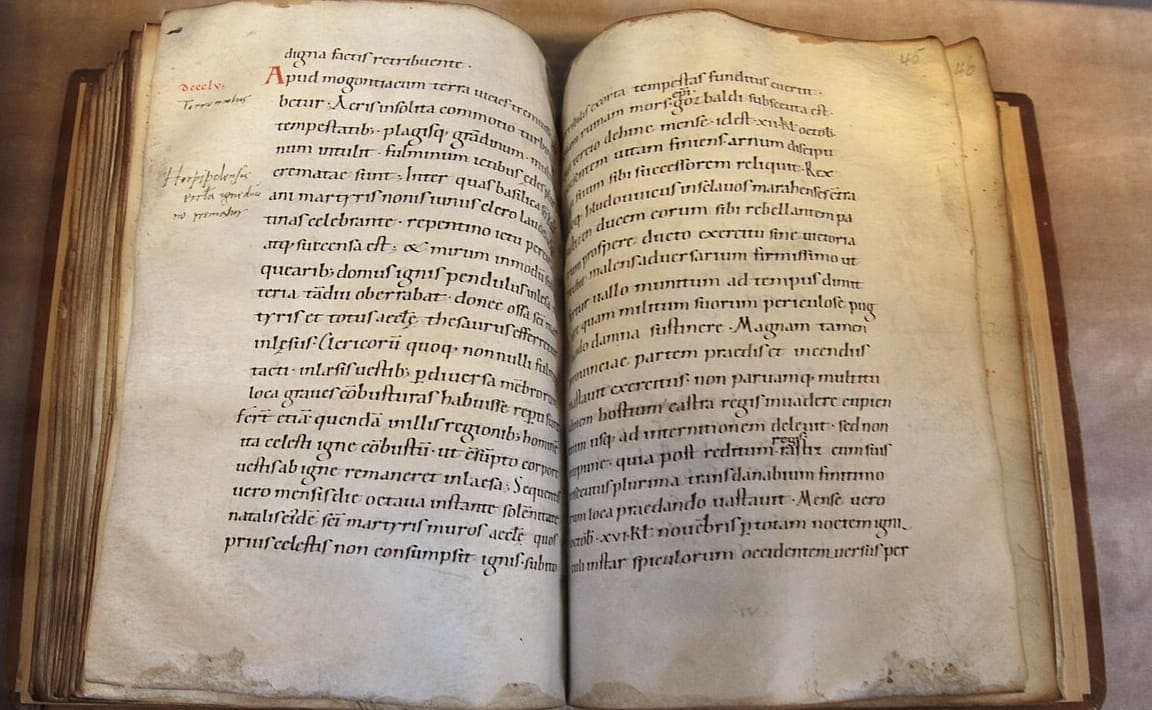 digna factis retribuente .
dccclv.
Apud mogontiacum terra uicies tremuisse
Terremotus
betur · Aeris insolita commotio turbi
tempestatib; · plagisq; grādinum · mul
num intulit · fulminum ictibus edes plu
crematae sunt ; Inter quas basilica
ani martyris nonis iunus clero laud
tinas celebrante · repentino ictu percu
atq; succensa est ; & mirum inmodū
quearib; domus ignis pendulus inlesa
teria tādiu oberrabat · donec ossa sc̄i mar
tyris et totus aecłę thesaurus efferretur
inlęsus · Clericorū quoq; nonnulli fulm
tacti · inlaesis uestib; p diuersa mēbrorum
loca graues cōbusturas habuisse repti sunt
fert̄ etiā quendā in illis regionib; hominē
ita celesti igne cōbustū · ut cōsūpto corpore
uestis ab igne remaneret inlaesa ; Sequenti
uero mensis die octaua instante solēnitate
natalis eidē sc̄i martyris muros aecłę quos
prius celestis non consumpsit ignis · subito
45
46
exorta tempestas funditus euertit ·
ruinam mors · goz baldi epi · subsecuta est ·
tertio dehinc mense · id est · xii · kł · octob̄ ·
uitam finiens arnum discipu
suum sibi successorem reliquit · Rex
hludouuicus in sclauos marahenses
ducem eorum sibi rebellantem pa
prospere ducto exercitu sine uictoria
malens aduersarium firmissimo ut
uallo munitum ad tempus dimit
quam militum suorum periculose pug
damna sustinere · Magnam tamen
prouinciae partem praedis et incendiis
exercitus · non paruamq; multitu
hostium castra regis inuadere cupien
usq; ad internitionem deleuit · sed non
quia post reditum regis rastiz cum suis
plurima trans danubium finitimo
loca praedando uastauit · Mense uero
octob̄ · xvi · kł nouēbris p totam noctem igni
instar spiculorum occidentem uersus per